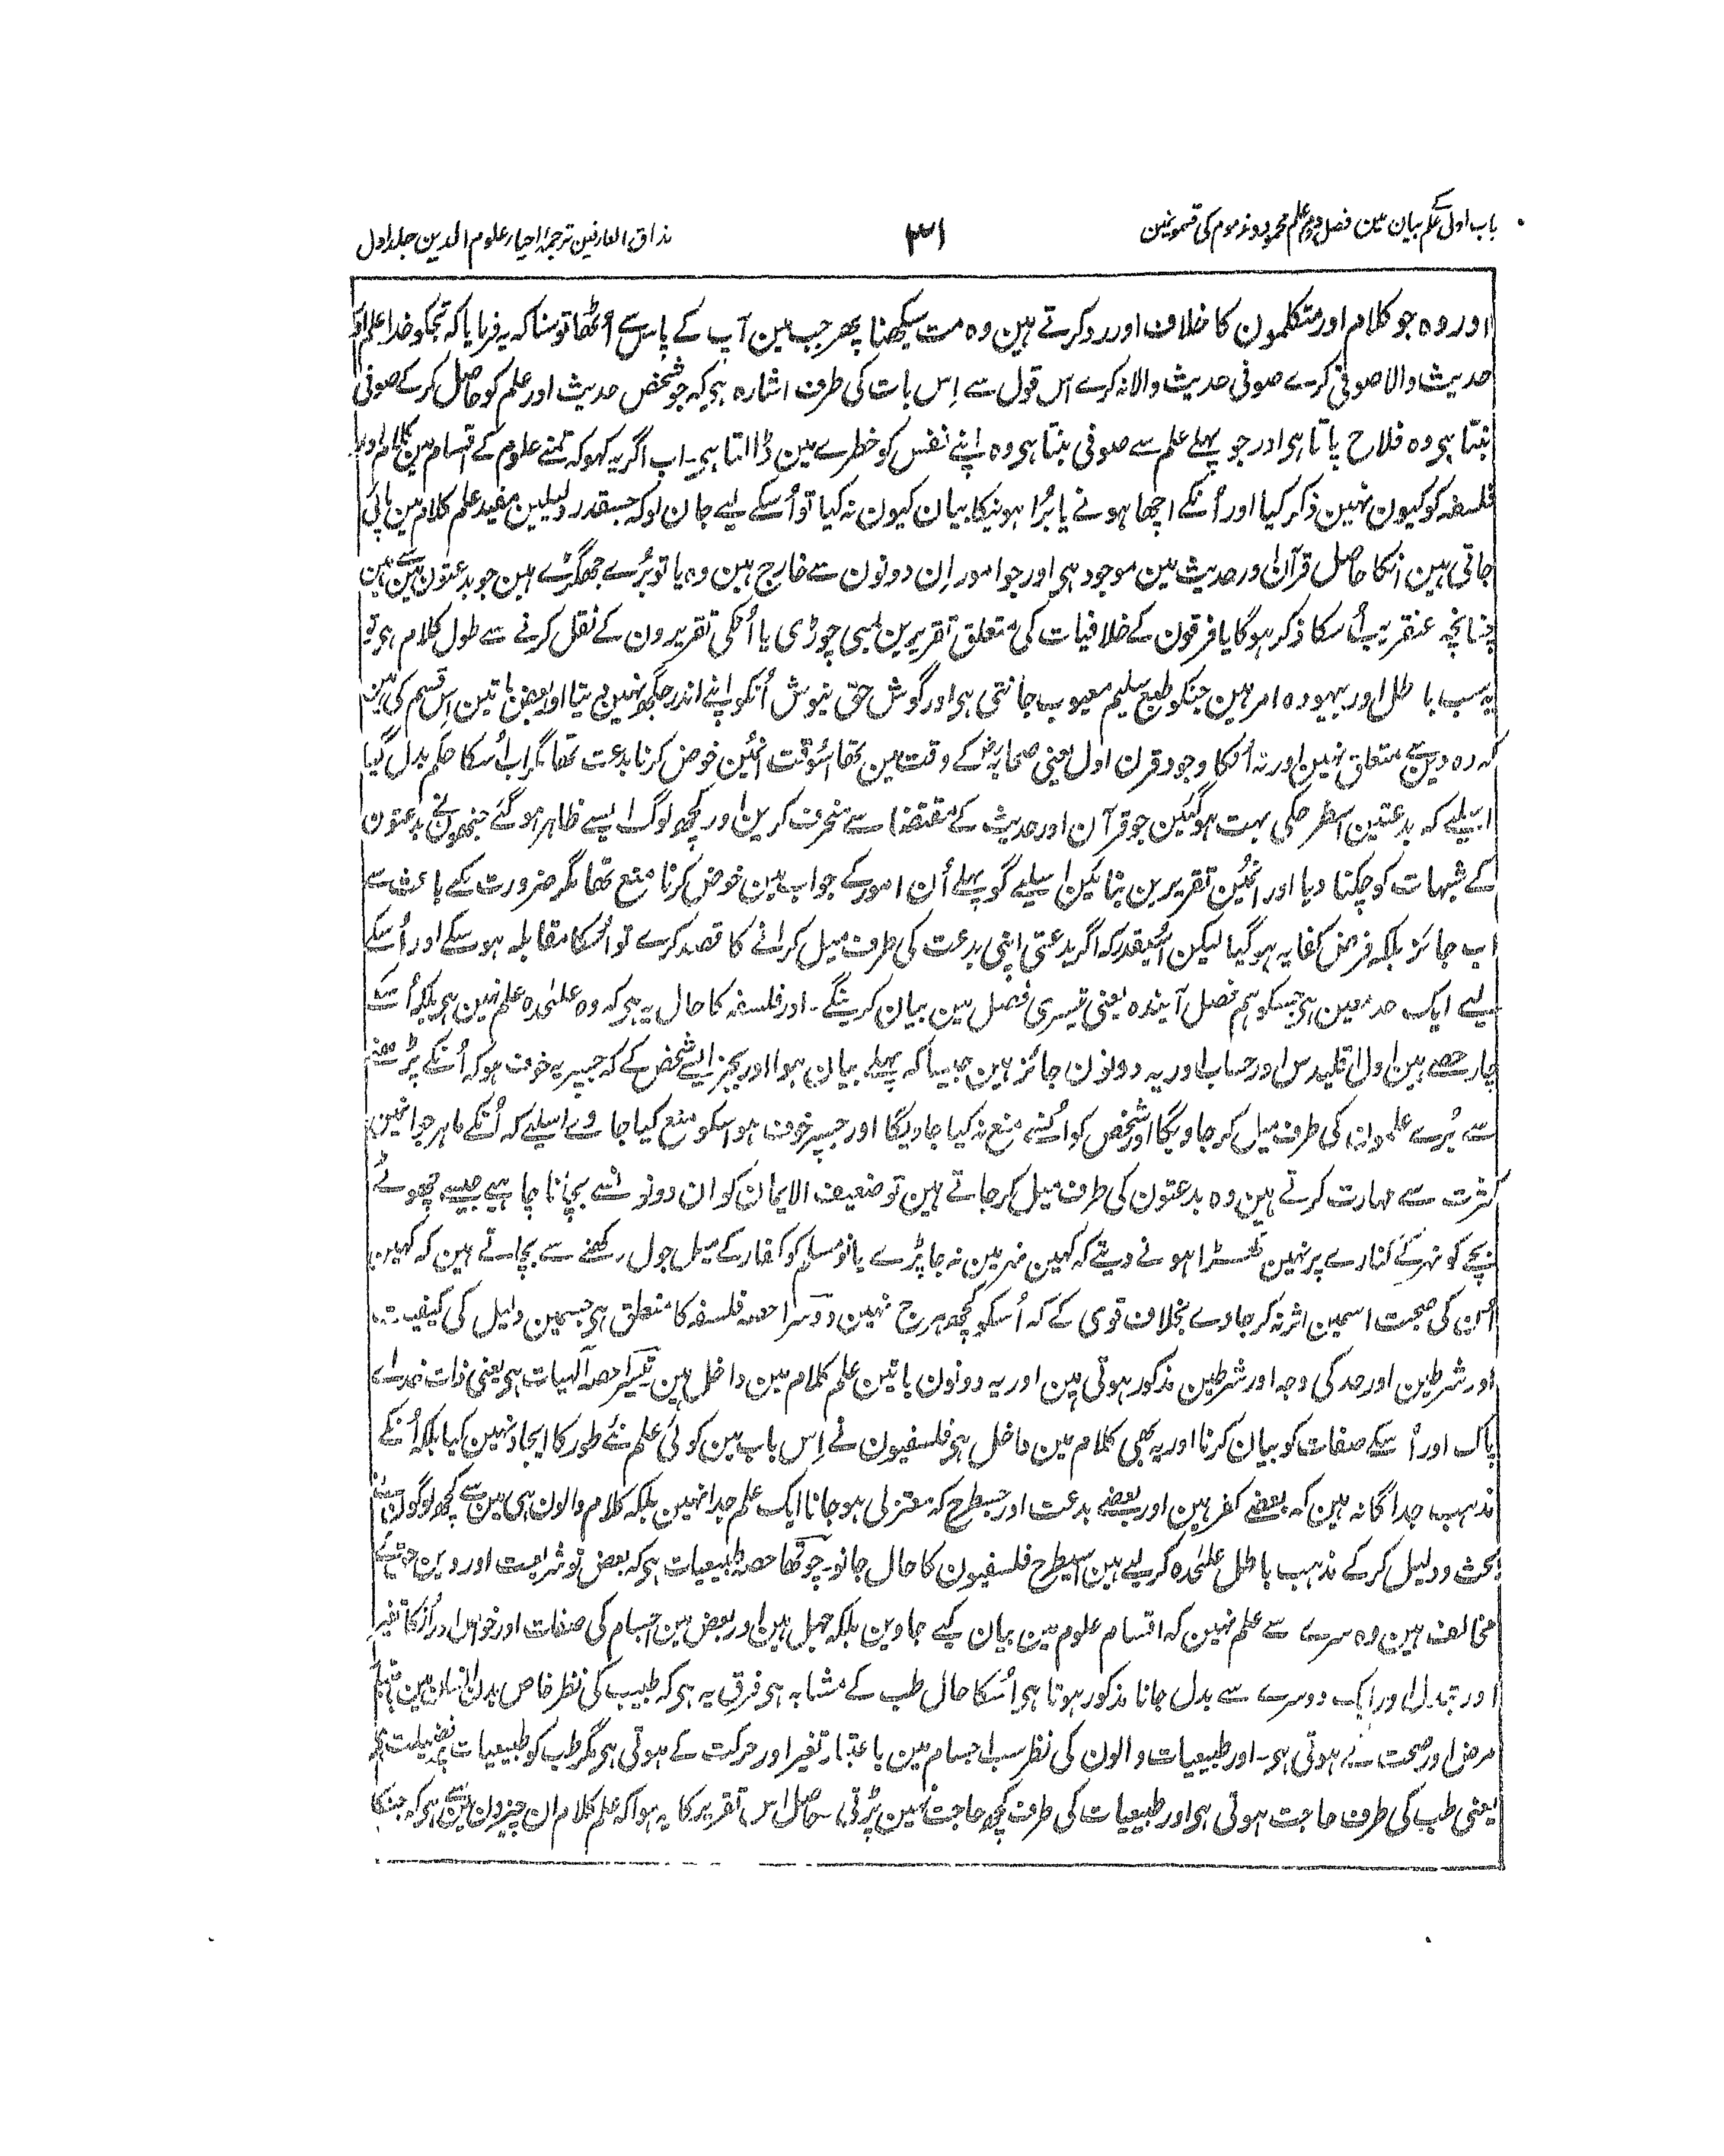 باب اول علم کے بیان مین فصل دوم علم محمود و مذموم کی قسمونمین
۳۱
مذاق العارفین ترجمۂ احیاء علوم الدین جلد اول
اور وہ جو کلام اور متکلمون کا خلاف اور رد کرتے ہین وہ مت سیکھنا پھر جب مین آپ کے پاس سے اُٹھا تو سنا کہ یہ فرمایا کہ تجکو خدا علم اور
حدیث والا صوفی کرے صوفی حدیث والا نہ کرے اس قول سے اِس بات کی طرف اشارہ ہی کہ جو شخص حدیث اور علم کو حاصل کر کے صوفی
بنتا ہی وہ فلاح پاتا ہی اور جو پہلے علم سے صوفی بنتا ہی وہ اپنے نفس کو خطرے مین ڈالتا ہی۔ اب اگر یہ کہو کہ تمنے علوم کے اقسام مین کلام اور
فلسفہ کو کیون نہین ذکر کیا اور اُنکے اچھا ہونے یا بُرا ہونیکا بیان کیون نہ کیا تو اُسکے لیے جان لو کہ جسقدر دلیلین مفید علم کلام مین پائی
جاتی ہین انکا حاصل قرآن اور حدیث مین موجود ہی اور جو امور اِن دونون سے خارج ہین وہ یا تو بُرے جھگڑے ہین جو بدعتون مین سے ہین
چنانچہ عنقریب اُسکا ذکر ہوگا یا فرقون کے خلافیات کی متعلق تقریرین لمبی چوڑی یا اُنکی تقریرون کے نقل کرنے سے طول کلام ہی تو
یہ سب باطل اور بیہودہ امر ہین جنکو طبع سلیم معیوب جانتی ہی اور گوش حق نیوش اُنکو اپنے اندر جگہ نہین دیتا اور بعض باتین اِس قسم کی ہین
کہ وہ دین سے متعلق نہین اور نہ اُنکا وجود قرن اول یعنی صحابہ رض کے وقت مین تھا اُسوقت انمین خوض کرنا بدعت تھا مگر اب اُسکا حکم بدل گیا
اسیلیے کہ بدعتین اسطرحکی بہت ہوگئین جو قرآن اور حدیث کے مقتضا سے منحرف کرین اور کچھ لوگ ایسے ظاہر ہو گئے جنھون نے بدعتون
کے شبہات کو چکنا دیا اور انمین تقریرین بنائین اسیلیے گو پہلے اُن امور کے جواب مین خوض کرنا منع تھا مگر ضرورت کے باعث سے
اب جائز بلکہ فرض کفایہ ہوگیا لیکن اُسیقدر کہ اگر بدعتی اپنی بدعت کی طرف میل کرانے کا قصد کرے تو اُسکا مقابلہ ہوسکے اور اُسکے
لیے ایک حد معین ہی جسکو ہم فصل آیندہ یعنی تیسری فصل مین بیان کرینگے۔ اور فلسفہ کا حال یہ ہی کہ وہ علٰحدہ علم نہین ہی بلکہ اُسکے
چار حصے ہین اول اقلیدس اور حساب اور یہ دونون جائز ہین جیسا کہ پہلے بیان ہوا اور بجز ایسے شخص کے کہ جسپر یہ خوف ہو کہ اُنکے پڑھنے
سے بُرے علمون کی طرف میل کر جاویگا اور شخص کو اُنسے منع نہ کیا جاویگا اور جسپر خوف ہو اسکو منع کیا جاوے اسلیے کہ اُنکے ماہر جو انمین
کثرت سے مہارت کرتے ہین وہ بدعتون کی طرف میل کر جاتے ہین تو ضعیف الایمان کو ان دونو نسے بچانا چاہیے جیسے چھوٹے
بچے کو نہر کے کنارے پر نہین کھڑا ہونے دیتے کہ کہین نہر مین نہ جا پڑے یا نو مسلم کو کفار کے میل جول رکھنے سے بچاتے ہین کہ کہین
اُن کی صحبت اسمین اثر نہ کر جاوے بخلاف قوی کے کہ اُسکو کچھ ہرج نہین دوسرا حصہ فلسفہ کا منطق ہی جسمین دلیل کی کیفیت
اور شرطین اور حد کی وجہ اور شرطین مذکور ہوتی ہین اور یہ دونون باتین علم کلام مین داخل ہین تیسرا حصہ آلہیات ہی یعنی ذات خداے
پاک اور اُسکے صفات کو بیان کرنا اور یہ بھی کلام مین داخل ہی فلسفیون نے اِس باب مین کوئی علم نئے طور کا ایجاد نہین کیا بلکہ اُنکے
مذہب جداگانہ ہین کہ بعضے کفر ہین اور بعضے بدعت اور جسطرح کہ معتزلی ہو جانا ایک علم جدا نہین بلکہ کلام والون ہی مین سے کچھ لوگون نے
بحث و دلیل کر کے مذہب باطل علٰحدہ کر لیے ہین اسیطرح فلسفیون کا حال جانو۔ چوتھا حصہ طبیعیات ہی کہ بعض تو شریعت اور دین حق کے
مخالف ہین وہ سرے سے علم نہین کہ اقسام علوم مین بیان کیے جاوین بلکہ جہل ہین اور بعض مین اجسام کی صفات اور خواص اور اُنکا تغیر
اور تبدل اور ایک دوسرے سے بدل جانا مذکور ہوتا ہی اُسکا حال طب کے مشابہ ہی فرق یہ ہی کہ طبیب کی نظر خاص بدن انسان مین
مرض اور صحت سے ہوتی ہی۔ اور طبیعیات والون کی نظر سب اجسام مین باعتبار تغیر اور حرکت کے ہوتی ہی مگر طب کو طبیعیات پر فضیلت ہی
یعنی طب کی طرف حاجت ہوتی ہی اور طبیعیات کی طرف کچھ حاجت نہین پڑتی۔ حاصل اس تقریر کا یہ ہوا کہ علم کلام ان چیزون مین سے ہی کہ جنکا